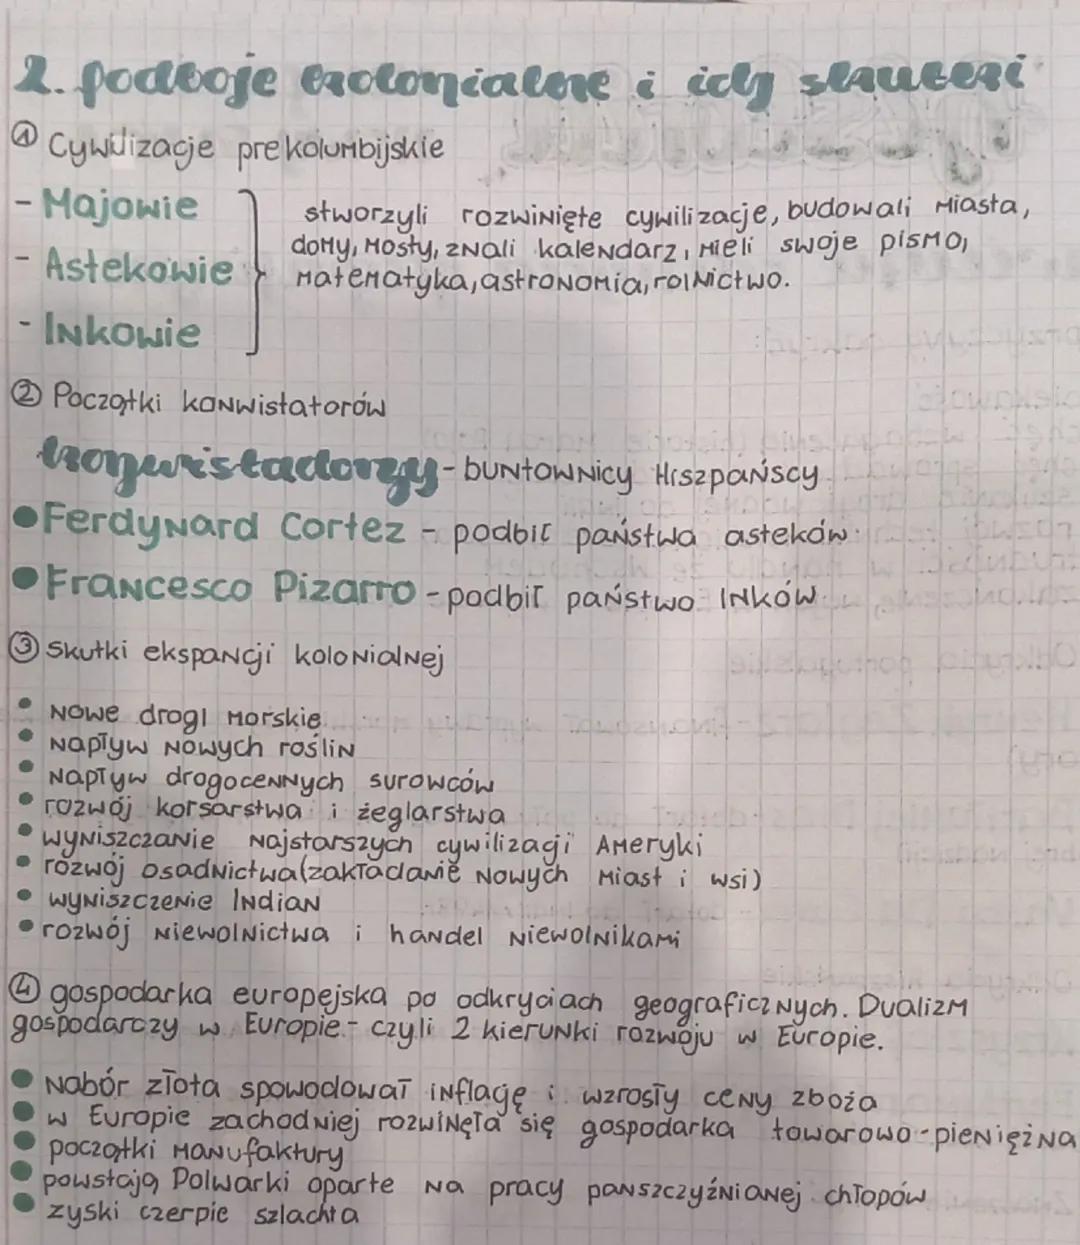 2. podboje kolonialne i ich skutki
① Cywilizacje prekolumbijskie
- Majowie
- Astekowie
- Inkowie
stworzyli rozwinięte cywilizacje, budowali miasta,
domy, mosty, znali kalendarz, mieli swoje pismo,
matematyka, astronomia, rolnictwo.
② Początki konwistatorów
konwistadorzy - buntownicy Hiszpańscy
• Ferdynard Cortez - podbił państwa asteków
• Francesco Pizarro - podbił państwo Inków
③ Skutki ekspancji kolonialnej
• nowe drogi morskie
• napływ nowych roślin
• napływ drogocennych surowców
• rozwój korsarstwa i żeglarstwa
• wyniszczanie najstarszych cywilizacji Ameryki
• rozwój osadnictwa (zakładanie nowych miast i wsi)
• wyniszczenie Indian
• rozwój niewolnictwa i handel niewolnikami
④ gospodarka europejska po odkryciach geograficznych. Dualizm
gospodarczy w Europie - czyli 2 kierunki rozwoju w Europie.
• Nabór złota spowodował inflację i wzrosły ceny zboża
• w Europie zachodniej rozwinęła się gospodarka towarowo-pieniężna
• początki manufaktury
• powstają Polwarki oparte na pracy panszczyźnianej chłopów
• zyski czerpie szlachta